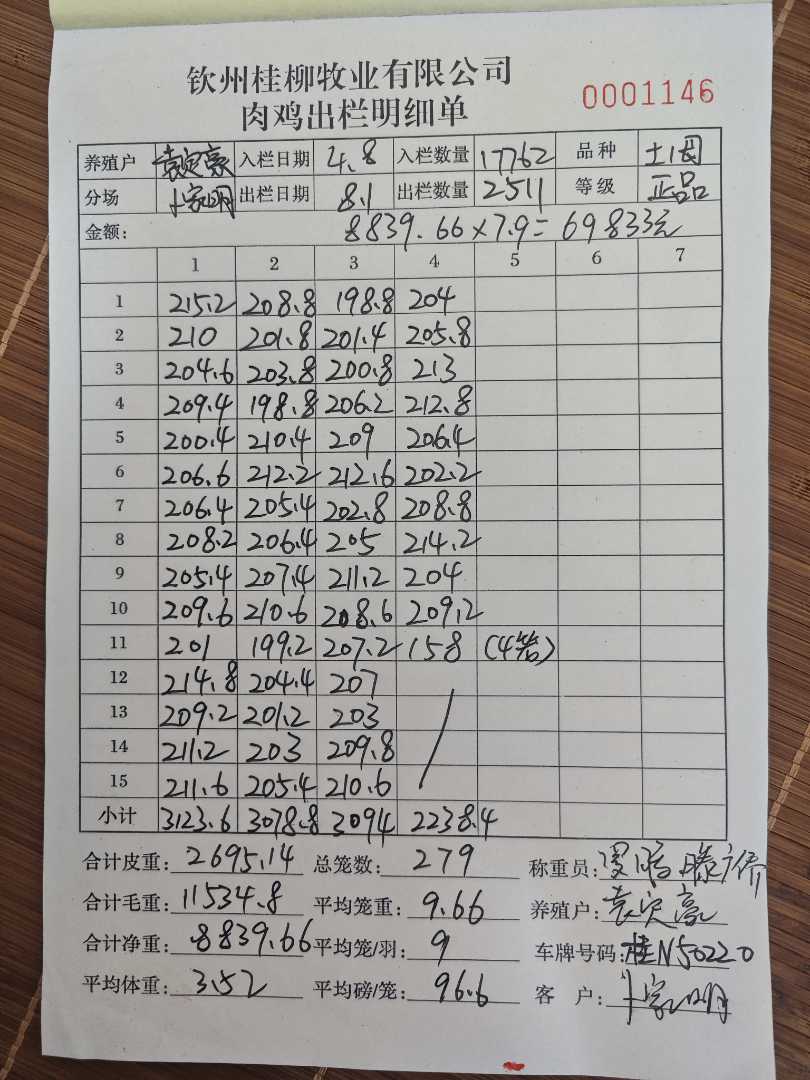 钦州桂柳牧业有限公司
肉鸡出栏明细单
0001146
养殖户 袁定豪 入栏日期 4.8 入栏数量 17762 品种 土2
分场 卜家明 出栏日期 8.1 出栏数量 2511 等级 正品
金额: 8839.66×7.9=69833元
1 2 3 4 5 6 7
1 215.2 208.8 198.8 204
2 210 201.8 201.4 205.8
3 204.6 203.8 200.8 213
4 209.4 198.8 206.2 212.8
5 200.4 210.4 209 206.4
6 206.6 212.2 212.6 202.2
7 206.4 205.4 202.8 208.8
8 208.2 206.4 205 214.2
9 205.4 207.4 211.2 204
10 209.6 210.6 208.6 209.2
11 201 199.2 207.2 158 (4笼)
12 214.8 204.4 207
13 209.2 201.2 203
14 211.2 203 209.8
15 211.6 205.4 210.6
小计 3123.6 3078.8 3094 2238.4
合计皮重: 2695.14 总笼数: 279 称重员:
合计毛重: 11534.8 平均笼重: 9.66 养殖户: 袁定豪
合计净重: 8839.66 平均笼/羽: 9 车牌号码: 桂N50220
平均体重: 3.52 平均磅/笼: 96.6 客 户: 卜家明